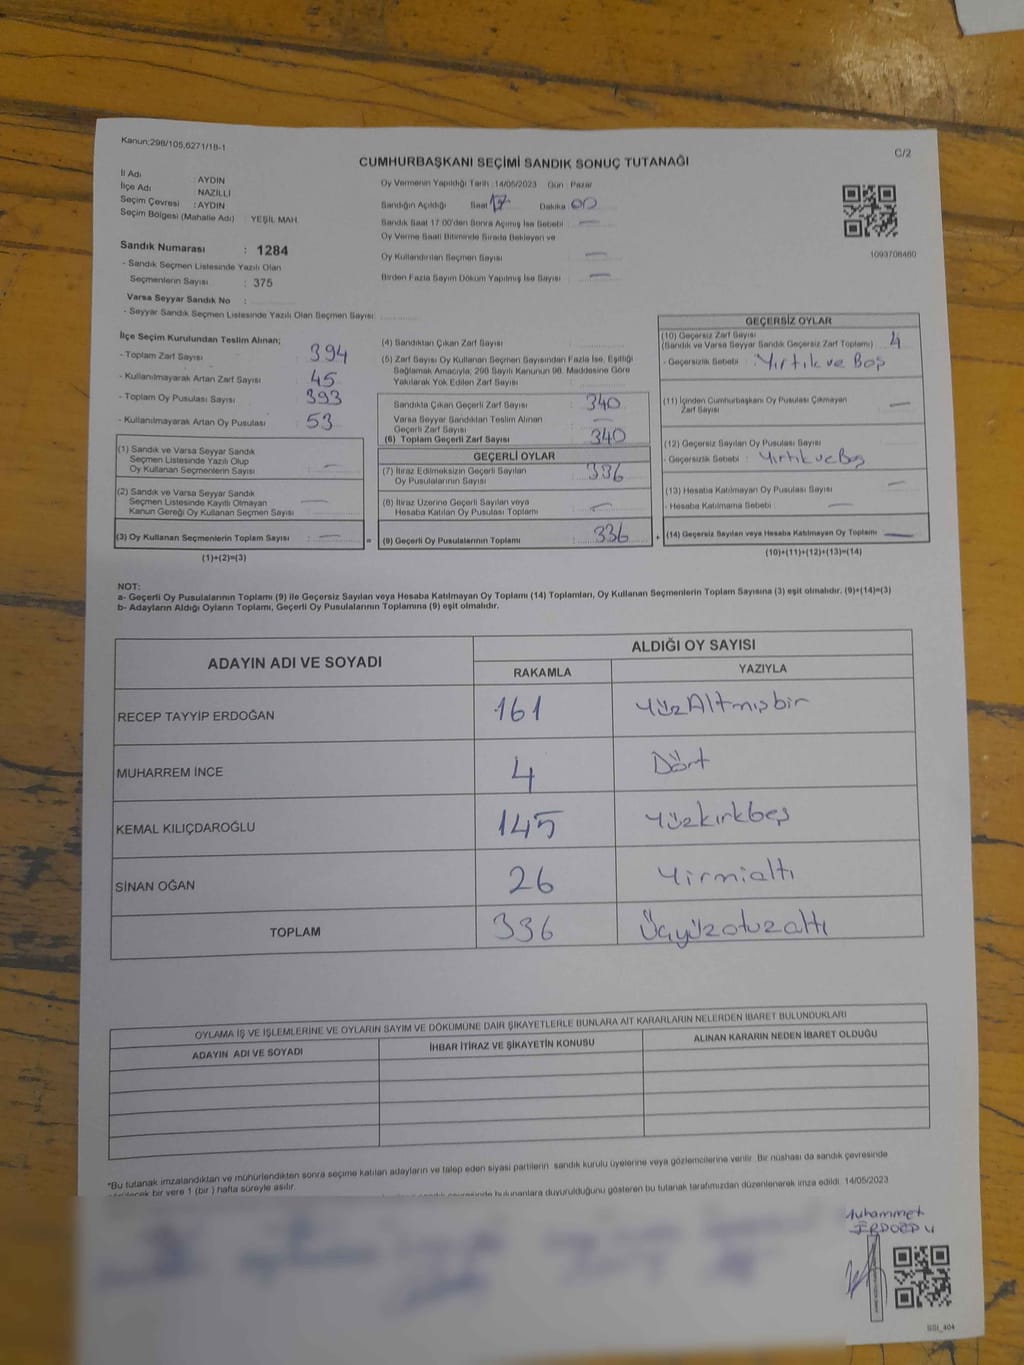 Kanun:298/105,6271/18-1
C/2
CUMHURBAŞKANI SEÇİMİ SANDIK SONUÇ TUTANAĞI
İl Adı : AYDIN
İlçe Adı : NAZİLLİ
Seçim Çevresi : AYDIN
Seçim Bölgesi (Mahalle Adı) : YEŞİL MAH.
Oy Vermenin Yapıldığı Tarih :14/05/2023 Gün : Pazar
Sandığın Açıldığı Saat 17 Dakika 00
Sandık Saat 17:00'den Sonra Açılmış İse Sebebi : —
Oy Verme Saati Bitiminde Sırada Bekleyen ve
Oy Kullandırılan Seçmen Sayısı —
Birden Fazla Sayım Döküm Yapılmış İse Sayısı : —
1093708460
Sandık Numarası : 1284
- Sandık Seçmen Listesinde Yazılı Olan
Seçmenlerin Sayısı : 375
Varsa Seyyar Sandık No :
- Seyyar Sandık Seçmen Listesinde Yazılı Olan Seçmen Sayısı:
İlçe Seçim Kurulundan Teslim Alınan;
- Toplam Zarf Sayısı : 394
- Kullanılmayarak Artan Zarf Sayısı : 45
- Toplam Oy Pusulası Sayısı : 393
- Kullanılmayarak Artan Oy Pusulası : 53
(1) Sandık ve Varsa Seyyar Sandık
Seçmen Listesinde Yazılı Olup
Oy Kullanan Seçmenlerin Sayısı : —
(2) Sandık ve Varsa Seyyar Sandık
Seçmen Listesinde Kayıtlı Olmayan
Kanun Gereği Oy Kullanan Seçmen Sayısı : —
(3) Oy Kullanan Seçmenlerin Toplam Sayısı : —
(1)+(2)=(3)
(4) Sandıktan Çıkan Zarf Sayısı :
(5) Zarf Sayısı Oy Kullanan Seçmen Sayısından Fazla İse, Eşitliği
Sağlamak Amacıyla, 298 Sayılı Kanunun 98. Maddesine Göre
Yakılarak Yok Edilen Zarf Sayısı :
Sandıkta Çıkan Geçerli Zarf Sayısı : 340
Varsa Seyyar Sandıktan Teslim Alınan
Geçerli Zarf Sayısı : —
(6) Toplam Geçerli Zarf Sayısı : 340
GEÇERLİ OYLAR
(7) İtiraz Edilmeksizin Geçerli Sayılan
Oy Pusulalarının Sayısı : 336
(8) İtiraz Üzerine Geçerli Sayılan veya
Hesaba Katılan Oy Pusulası Toplamı : —
= (9) Geçerli Oy Pusulalarının Toplamı : 336
GEÇERSİZ OYLAR
(10) Geçersiz Zarf Sayısı
(Sandık ve Varsa Seyyar Sandık Geçersiz Zarf Toplamı) : 4
- Geçersizlik Sebebi : Yırtık ve Boş
(11) İçinden Cumhurbaşkanı Oy Pusulası Çıkmayan
Zarf Sayısı : —
(12) Geçersiz Sayılan Oy Pusulası Sayısı :
- Geçersizlik Sebebi : Yırtık ve Boş
(13) Hesaba Katılmayan Oy Pusulası Sayısı : —
- Hesaba Katılmama Sebebi : —
+ (14) Geçersiz Sayılan veya Hesaba Katılmayan Oy Toplamı : —
(10)+(11)+(12)+(13)=(14)
NOT:
a- Geçerli Oy Pusulalarının Toplamı (9) ile Geçersiz Sayılan veya Hesaba Katılmayan Oy Toplamı (14) Toplamları, Oy Kullanan Seçmenlerin Toplam Sayısına (3) eşit olmalıdır. (9)+(14)=(3)
b- Adayların Aldığı Oyların Toplamı, Geçerli Oy Pusulalarının Toplamına (9) eşit olmalıdır.
ADAYIN ADI VE SOYADI
ALDIĞI OY SAYISI
RAKAMLA YAZIYLA
RECEP TAYYİP ERDOĞAN 161 YüzAltmışbir
MUHARREM İNCE 4 Dört
KEMAL KILIÇDAROĞLU 145 Yüzkırkbeş
SİNAN OĞAN 26 Yirmialtı
TOPLAM 336 Üçyüzotuzaltı
OYLAMA İŞ VE İŞLEMLERİNE VE OYLARIN SAYIM VE DÖKÜMÜNE DAİR ŞİKAYETLERLE BUNLARA AİT KARARLARIN NELERDEN İBARET BULUNDUKLARI
ADAYIN ADI VE SOYADI İHBAR İTİRAZ VE ŞİKAYETİN KONUSU ALINAN KARARIN NEDEN İBARET OLDUĞU
*Bu tutanak imzalandıktan ve mühürlendikten sonra seçime katılan adayların ve talep eden siyasi partilerin sandık kurulu üyelerine veya gözlemcilerine verilir. Bir nüshası da sandık çevresinde
bir yere 1 (bir ) hafta süreyle asılır.
bulunanlara duyurulduğunu gösteren bu tutanak tarafımızdan düzenlenerek imza edildi. 14/05/2023
Muhammet